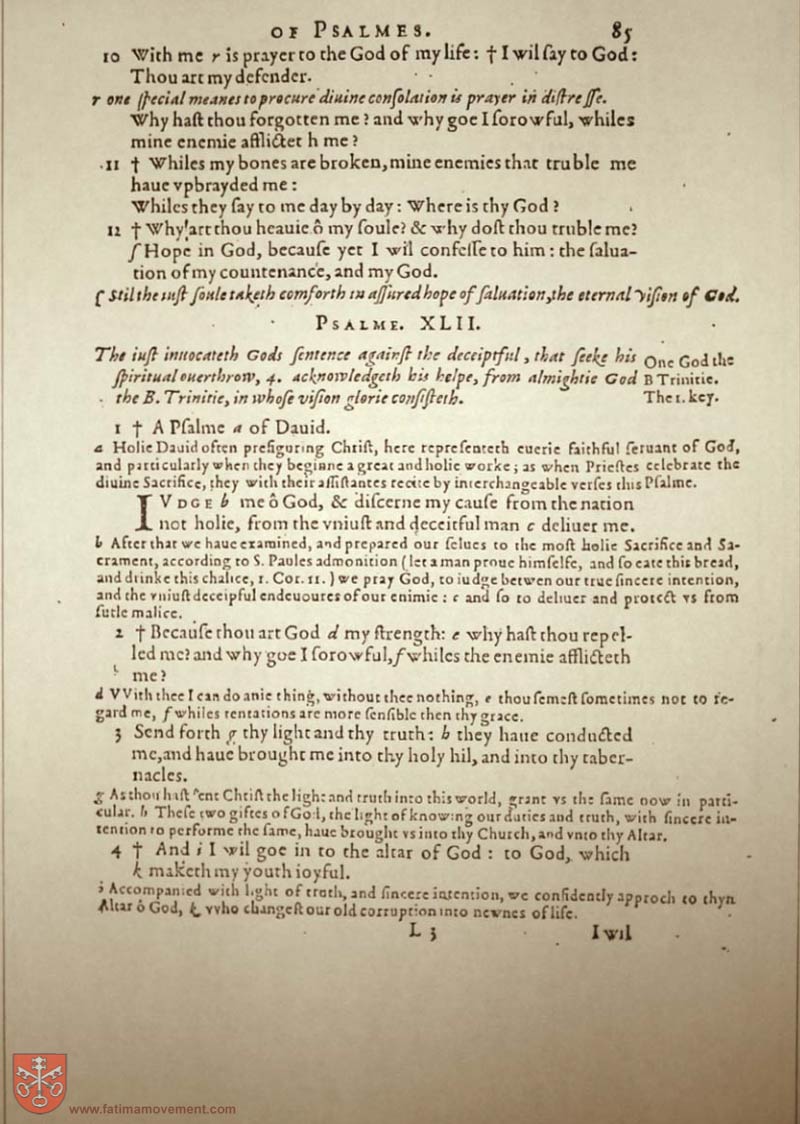 OF PSALMES. 85
10 With me r is prayer to the God of my life: † I wil ſay to God:
Thou art my defender.
r one ſpecial meanes to procure diuine conſolation is prayer in diſtreſſe.
Why haſt thou forgotten me? and why goe I ſorowful, whiles
mine enemie afflictet h me?
11 † Whiles my bones are broken, mine enemies that truble me
haue vpbrayded me:
Whiles they ſay to me day by day: Where is thy God?
12 † Why art thou heauie ô my ſoule? & why doſt thou truble me?
ſ Hope in God, becauſe yet I wil confeſſe to him: the ſalua-
tion of my countenance, and my God.
ſ Stil the iuſt ſoule taketh comforth in aſſured hope of ſaluation, the eternal viſion of God.
PSALME. XLII.
The iuſt inuocateth Gods ſentence againſt the deceiptful, that ſeeke his
ſpiritual ouerthrow, 4. acknowledgeth his helpe, from almightie God
the B. Trinitie, in whoſe viſion glorie conſiſteth.
One God the
B Trinitie.
The 1. key.
1 † A Pſalme a of Dauid.
a Holie Dauid often prefiguring Chriſt, here repreſenteth euerie faithful ſeruant of God,
and particularly when they beginne a great and holie worke; as when Prieſtes celebrate the
diuine Sacrifice, they with their aſſiſtantes recite by interchangeable verſes this Pſalme.
IVDGE b me ô God, & diſcerne my cauſe from the nation
not holie, from the vniuſt and deceitful man c deliuer me.
b After that we haue examined, and prepared our ſelues to the moſt holie Sacrifice and Sa-
crament, according to S. Paules admonition (let a man proue himſelfe, and ſo eate this bread,
and drinke this chalice, 1. Cor. 11.) we pray God, to iudge betwen our true ſincere intention,
and the vniuſt deceipful endeuoures of our enimie: c and ſo to deliuer and protect vs from
ſutle malice.
2 † Becauſe thou art God d my ſtrength: e why haſt thou repel-
led me? and why goe I ſorowful, f whiles the enemie afflicteth
me?
d VVith thee I can do anie thing, without thee nothing, e thou ſemeſt ſometimes not to re-
gard me, f whiles tentations are more ſenſible then thy grace.
3 Send forth g thy light and thy truth: h they haue conducted
me, and haue brought me into thy holy hil, and into thy taber-
nacles.
g As thou haſt ſent Chriſt the light and truth into this world, grant vs the ſame now in parti-
cular. h Theſe two giftes of God, the light of knowing our duties and truth, with ſincere in-
tention to performe the ſame, haue brought vs into thy Church, and vnto thy Altar.
4 † And i I wil goe in to the altar of God: to God, which
k maketh my youth ioyful.
i Accompanied with light of truth, and ſincere intention, we confidently approch to thyn
Altar ô God, k vvho changeſt our old corruption into newnes of life.
L 3 I wil
www.fatimamovement.com